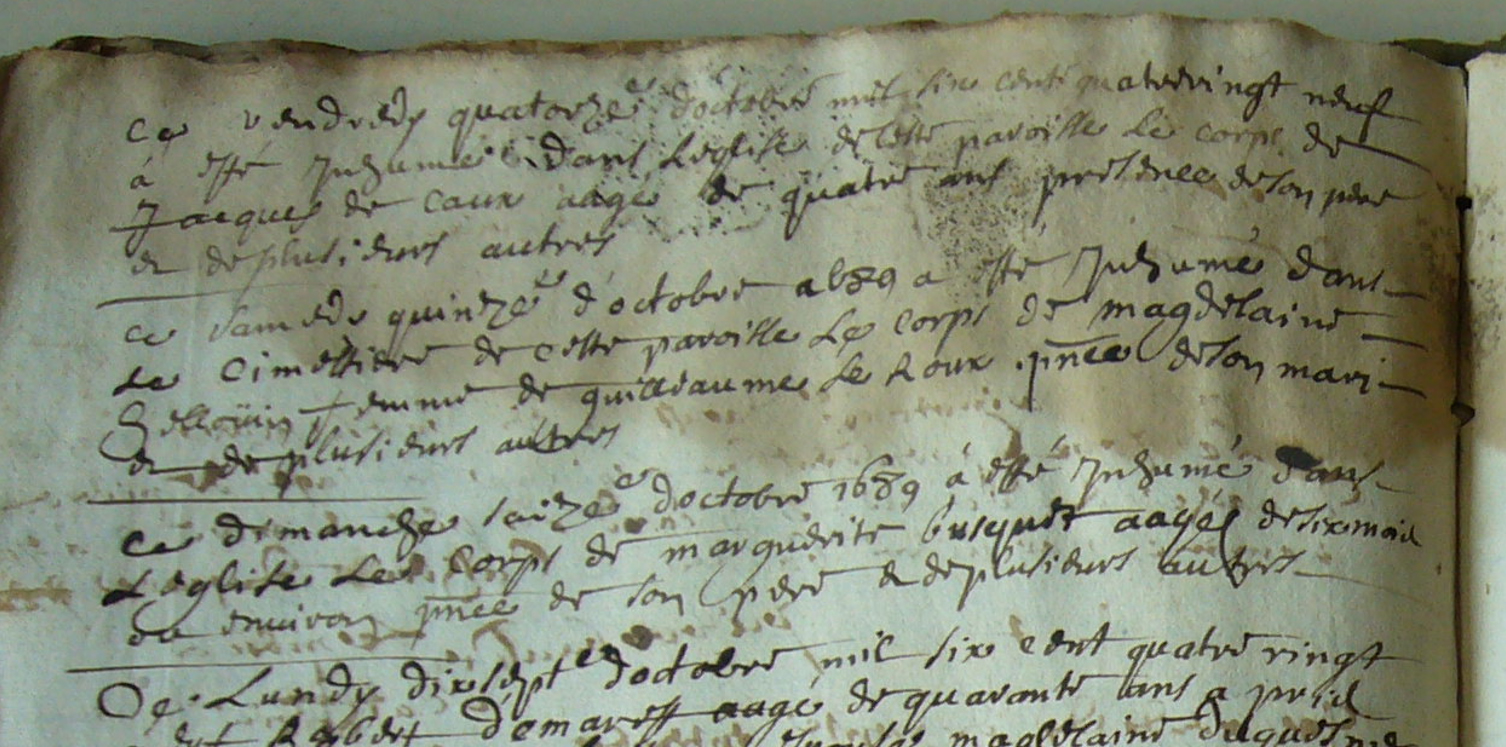 ce vendredy quatorze e d'octobre mil six cents quatrevingt neuf
à esté Inhumé dans L'eglise de cette paroisse Le corps de
Jacques de caux aagé de quatre ans presence de son pere
et de plusieurs autres
ce samedy quinze e d'octobre 1689 a esté Inhumé dans
Le cimettiere de cette paroisse Le corps de magdelaine
hellouin femme de guilleaume Le Roux pn̄ce de son mari
et de plusieurs autres
ce dimanche saize e d'octobre 1689 à esté Inhumé dans
L'eglise Le corps de marguerite busquet aagée de six mois
ou environ pn̄ce de son pere et de plusieurs autres
Ce Lundy dixsept e d'octobre mil six cent quatre vingt
neuf Robert Demarest aagé de quarante ans a
magdelaine Duquesne